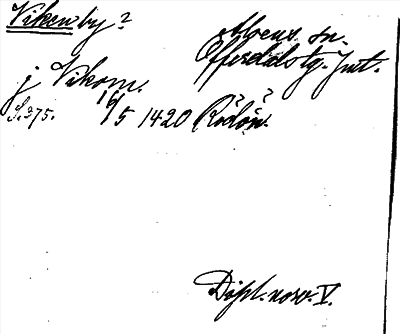 Vikenby?
Alsens sn.
Offerdals tg. Jmt.
j Vikom.
S. 375. 16/5 1420 Rödön.
? ?
Dipl. norv. V.